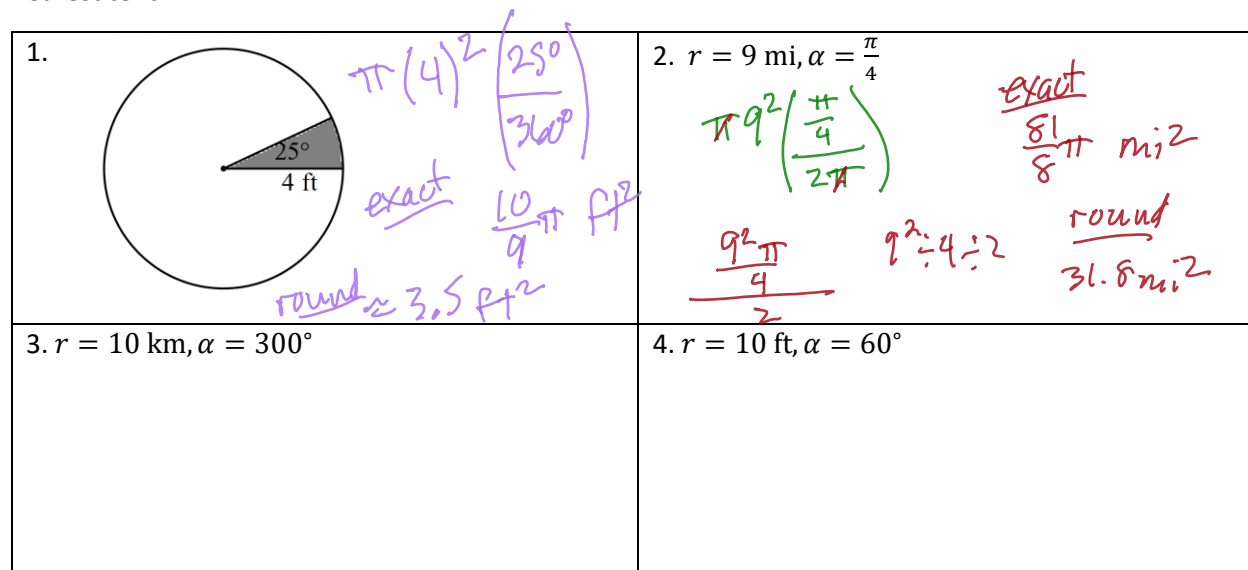 1.
25°
4 ft
π(4)² (25°/360°)
exact 10/9 π ft²
round ≈ 3.5 ft²
2. r = 9 mi, α = π/4
π9² (π/4 / 2π)
exact
81/8 π mi²
9²π/4 / 2
9² ÷ 4 ÷ 2
round
31.8 mi²
3. r = 10 km, α = 300°
4. r = 10 ft, α = 60°